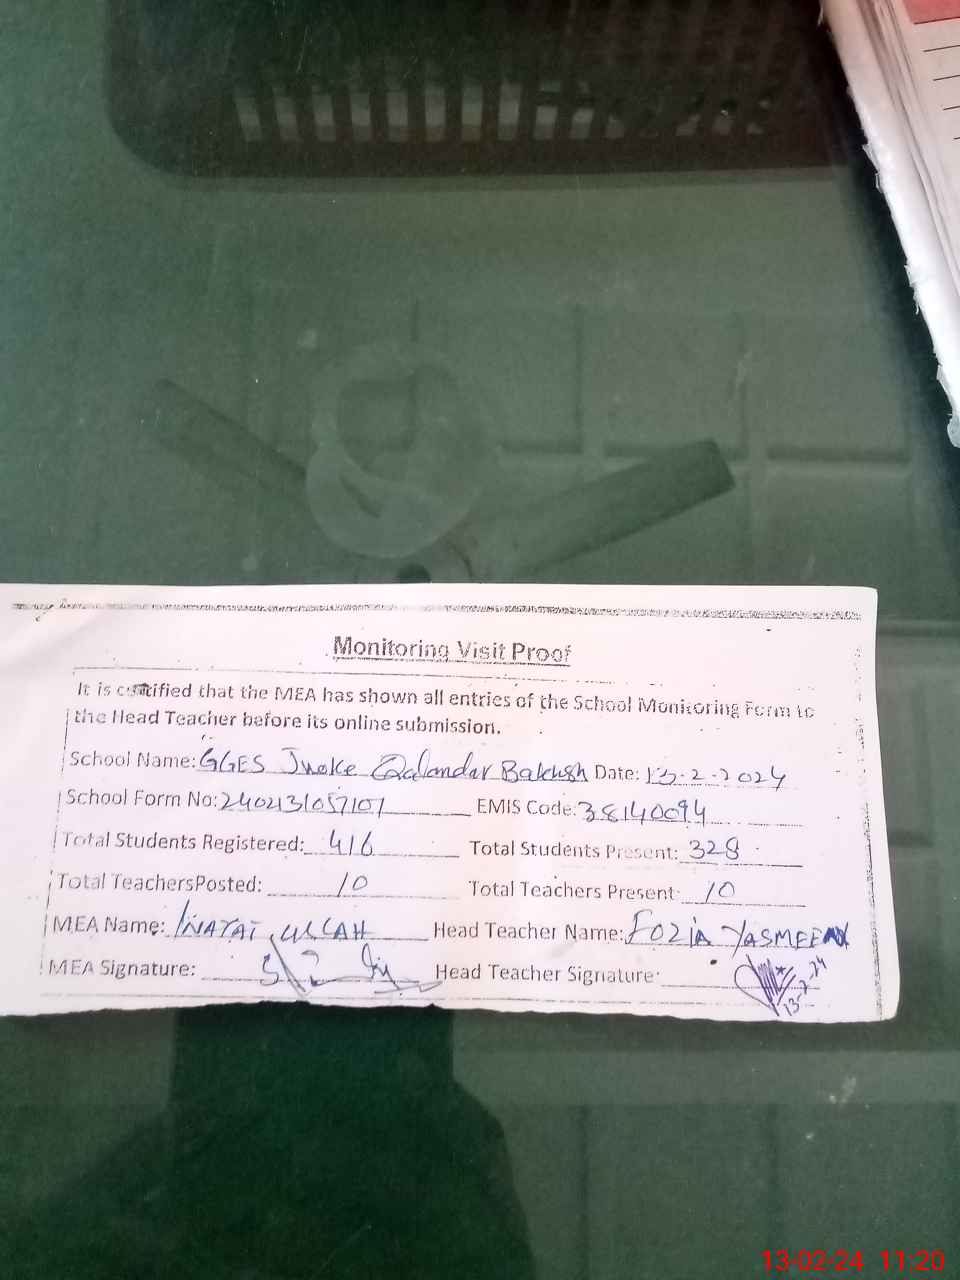 Monitoring Visit Proof
It is certified that the MEA has shown all entries of the School Monitoring Form to
the Head Teacher before its online submission.
School Name: GGES Jnoke Qalandar Bakhsh Date: 13-2-2024
School Form No: 2402131057101 EMIS Code: 38140094
Total Students Registered: 416 Total Students Present: 328
Total TeachersPosted: 10 Total Teachers Present: 10
MEA Name: INAYAT ULLAH Head Teacher Name: FOZIA YASMEEN
MEA Signature: Head Teacher Signature:
13-2-24
13-02-24 11:20